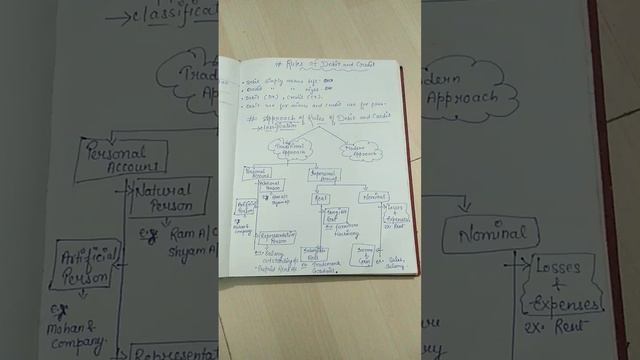 # Rules of Debit and Credit
• Debit simply means left
• Credit " " right
• Debit (Dr), Credit (Cr).
## Approach of Rules of Debit and Credit
→ classification
Traditional Approach
Modern Approach
Personal Account
Impersonal Account
Natural Person
Real
Nominal
Artificial Person
e.g Ram A/c
Shyam A/c
Tangible Real
Losses & Expenses
ex. Rent
e.g
Mohan & Company.
ex. Furniture
Machinery
Representative Person
Intangible Real
Income & Gain
ex. Sales,
Salary
ex. Salary outstanding
Prepaid
ex. Trademark,
Goodwill.
→ classificat
Tradi
App
Personal Account
Natural Person
e.g Ram A/c
Shyam A/
Artificial Person
e.g
Mohan &
Company.
Representat
dern
Approach
Nominal
Losses
&
Expenses
ex. Rent